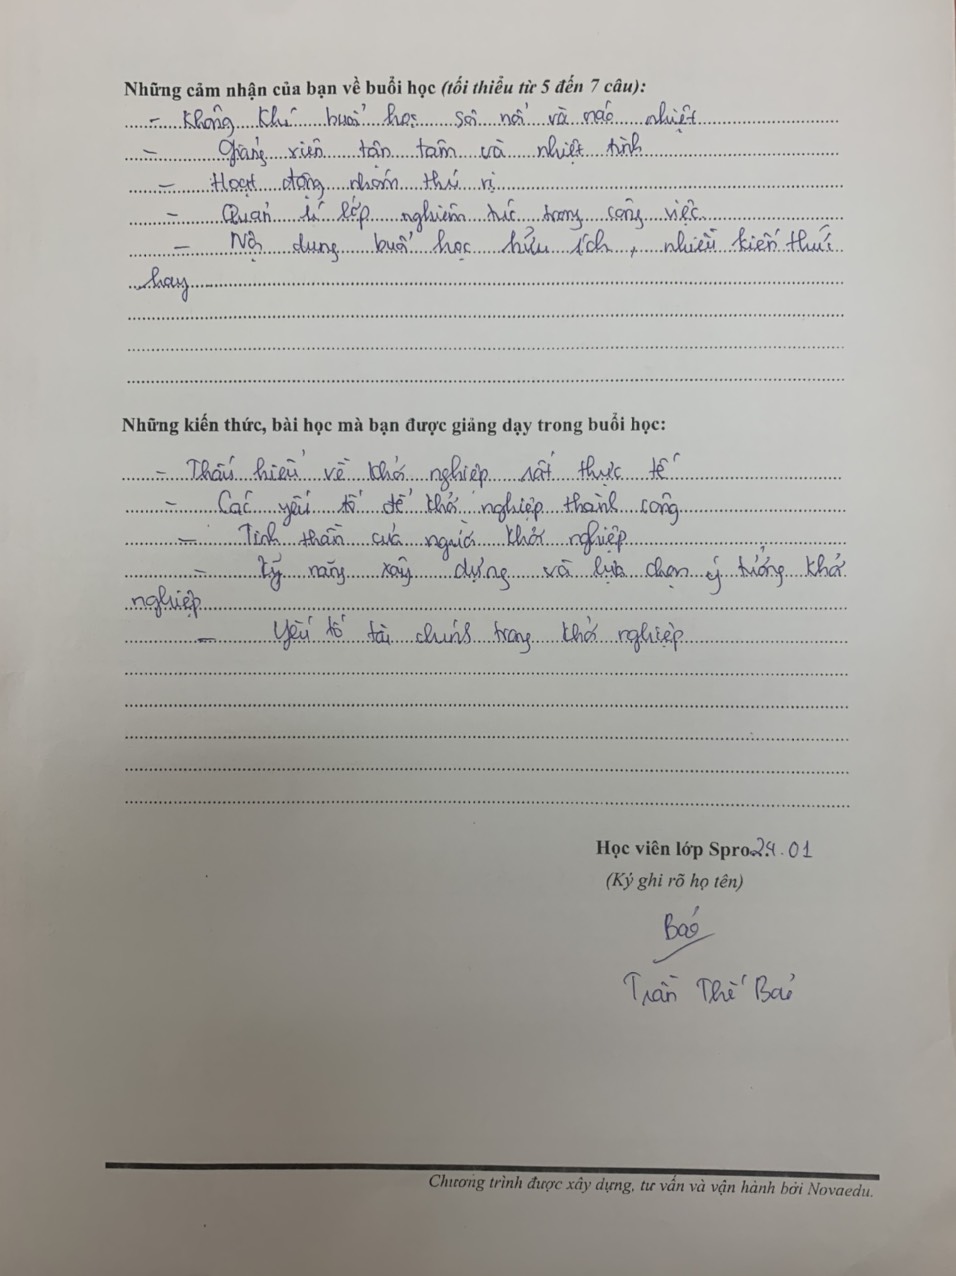 Những cảm nhận của bạn về buổi học (tối thiểu từ 5 đến 7 câu):
- Không khí buổi học sôi nổi và náo nhiệt
- Giảng viên tận tâm và nhiệt tình
- Hoạt động nhóm thú vị
- Quản lí lớp nghiêm túc trong công việc
- Nội dung buổi học hữu ích, nhiều kiến thức
hay
Những kiến thức, bài học mà bạn được giảng dạy trong buổi học:
- Thấu hiểu về khởi nghiệp rất thực tế
- Các yếu tố để khởi nghiệp thành công
- Tinh thần của người khởi nghiệp
- Kỹ năng xây dựng và lựa chọn ý tưởng khởi
nghiệp
- Yếu tố tài chính trong khởi nghiệp
Học viên lớp Spro 29.01
(Ký ghi rõ họ tên)
Bảo
Trần Thế Bảo
Chương trình được xây dựng, tư vấn và vận hành bởi Novaedu.